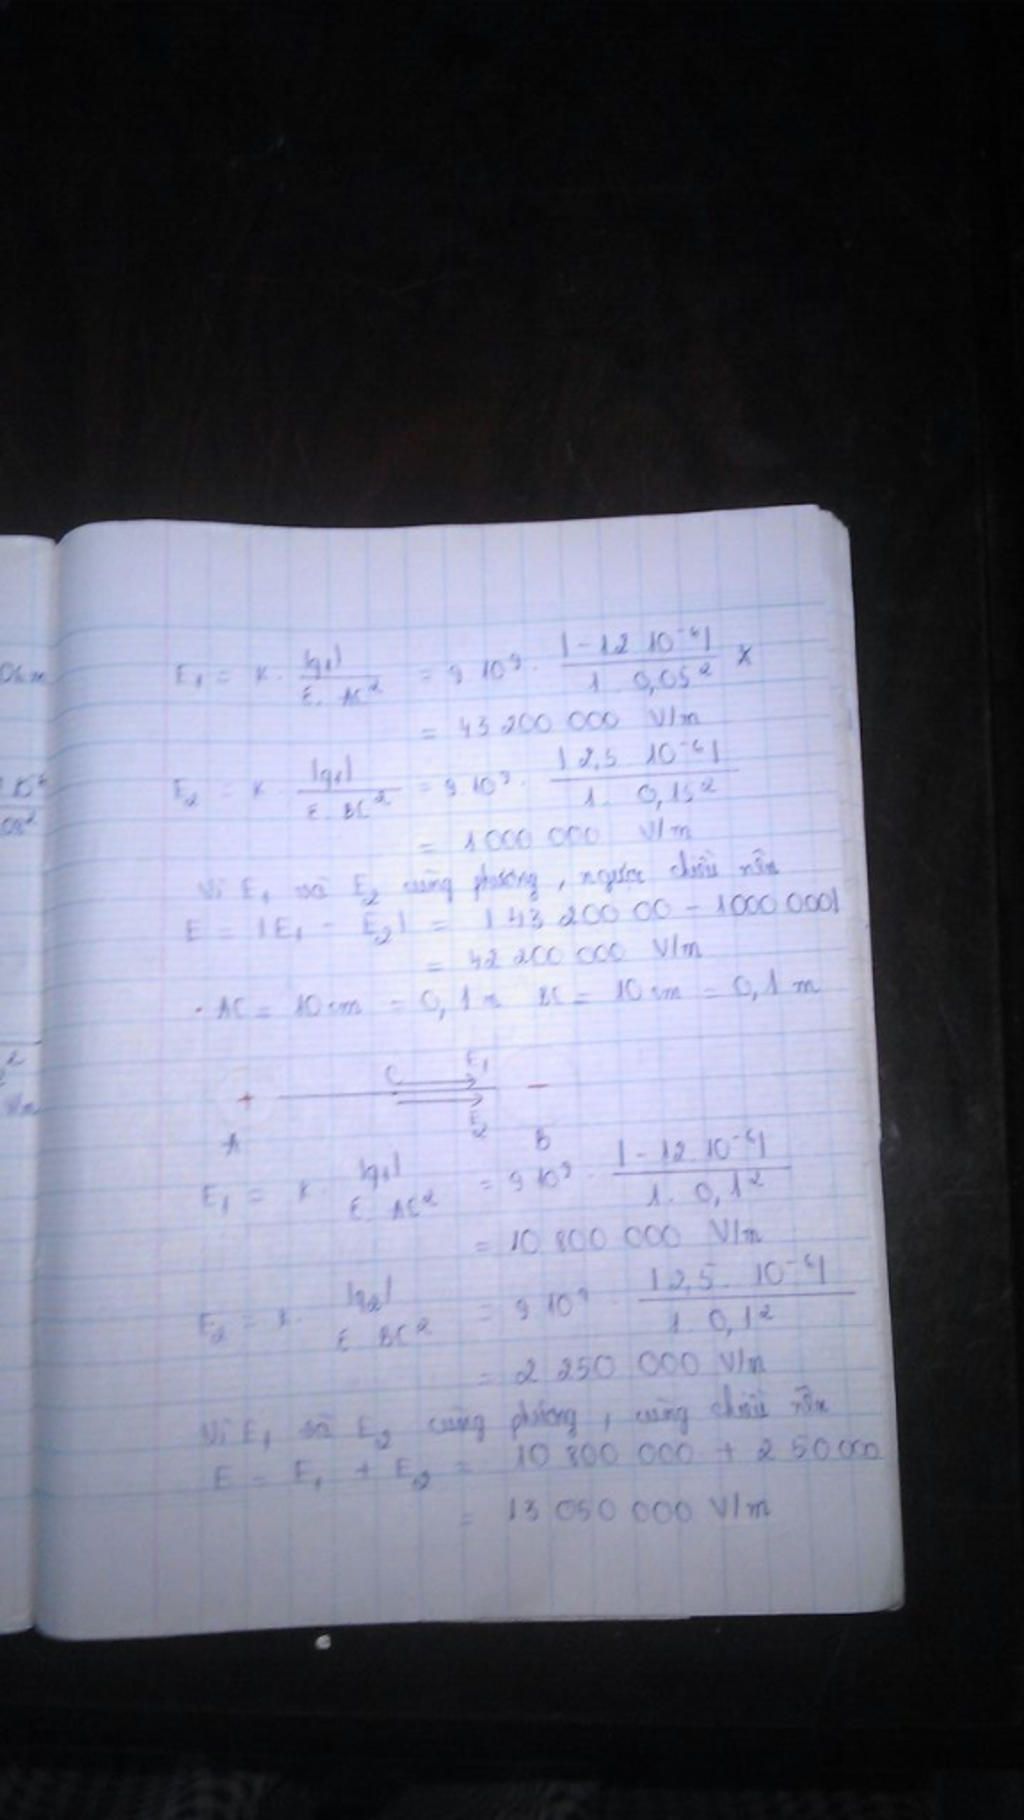 E₁ = K. |q₁| / E. AC² = 9 10⁹. |-12 10⁻⁶| / 1. 0,05² X
= 43 200 000 V/m
E₂ = K. |q₁| / E. BC² = 9.10⁹. |2,5 10⁻⁶| / 1. 0,15²
= 1 000 000 V/m
Vì E₁ và E₂ cùng phương, ngược chiều nên
E = |E₁ - E₂| = |43 200 00 - 1000 000|
= 42 200 000 V/m
. AC = 10 cm = 0,1 m BC = 10 cm = 0,1 m
C E₁
+ -
E₂
A B
E₁ = K |q₁| / E. AC² = 9 10⁹. |-12. 10⁻⁶| / 1. 0,1²
= 10 800 000 V/m
E₂ = K. |q₂| / E BC² = 9 10⁹. |2,5. 10⁻⁶| / 1. 0,1²
= 2 250 000 V/m
Vì E₁ và E₂ cùng phương, cùng chiều nên
E = E₁ + E₂ = 10 800 000 + 2 50 000
= 13 050 000 V/m